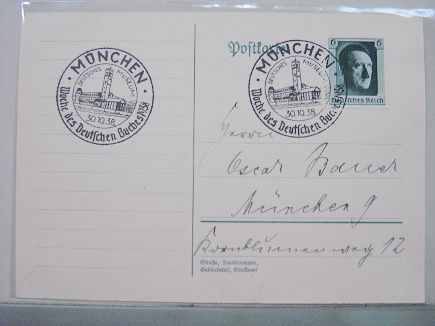 MÜNCHEN
DEUTSCHES MUSEUM
30.10.38
Woche des Deutschen Buches 1938
Postkarte
MÜNCHEN
DEUTSCHES MUSEUM
30.10.38
Woche des Deutschen Buches 1938
6 6
Deutsches Reich
Herrn
Oscar Bauer
München 9
Kornblumenweg 12
Straße, Hausnummer,
Gebäudeteil, Stockwerk